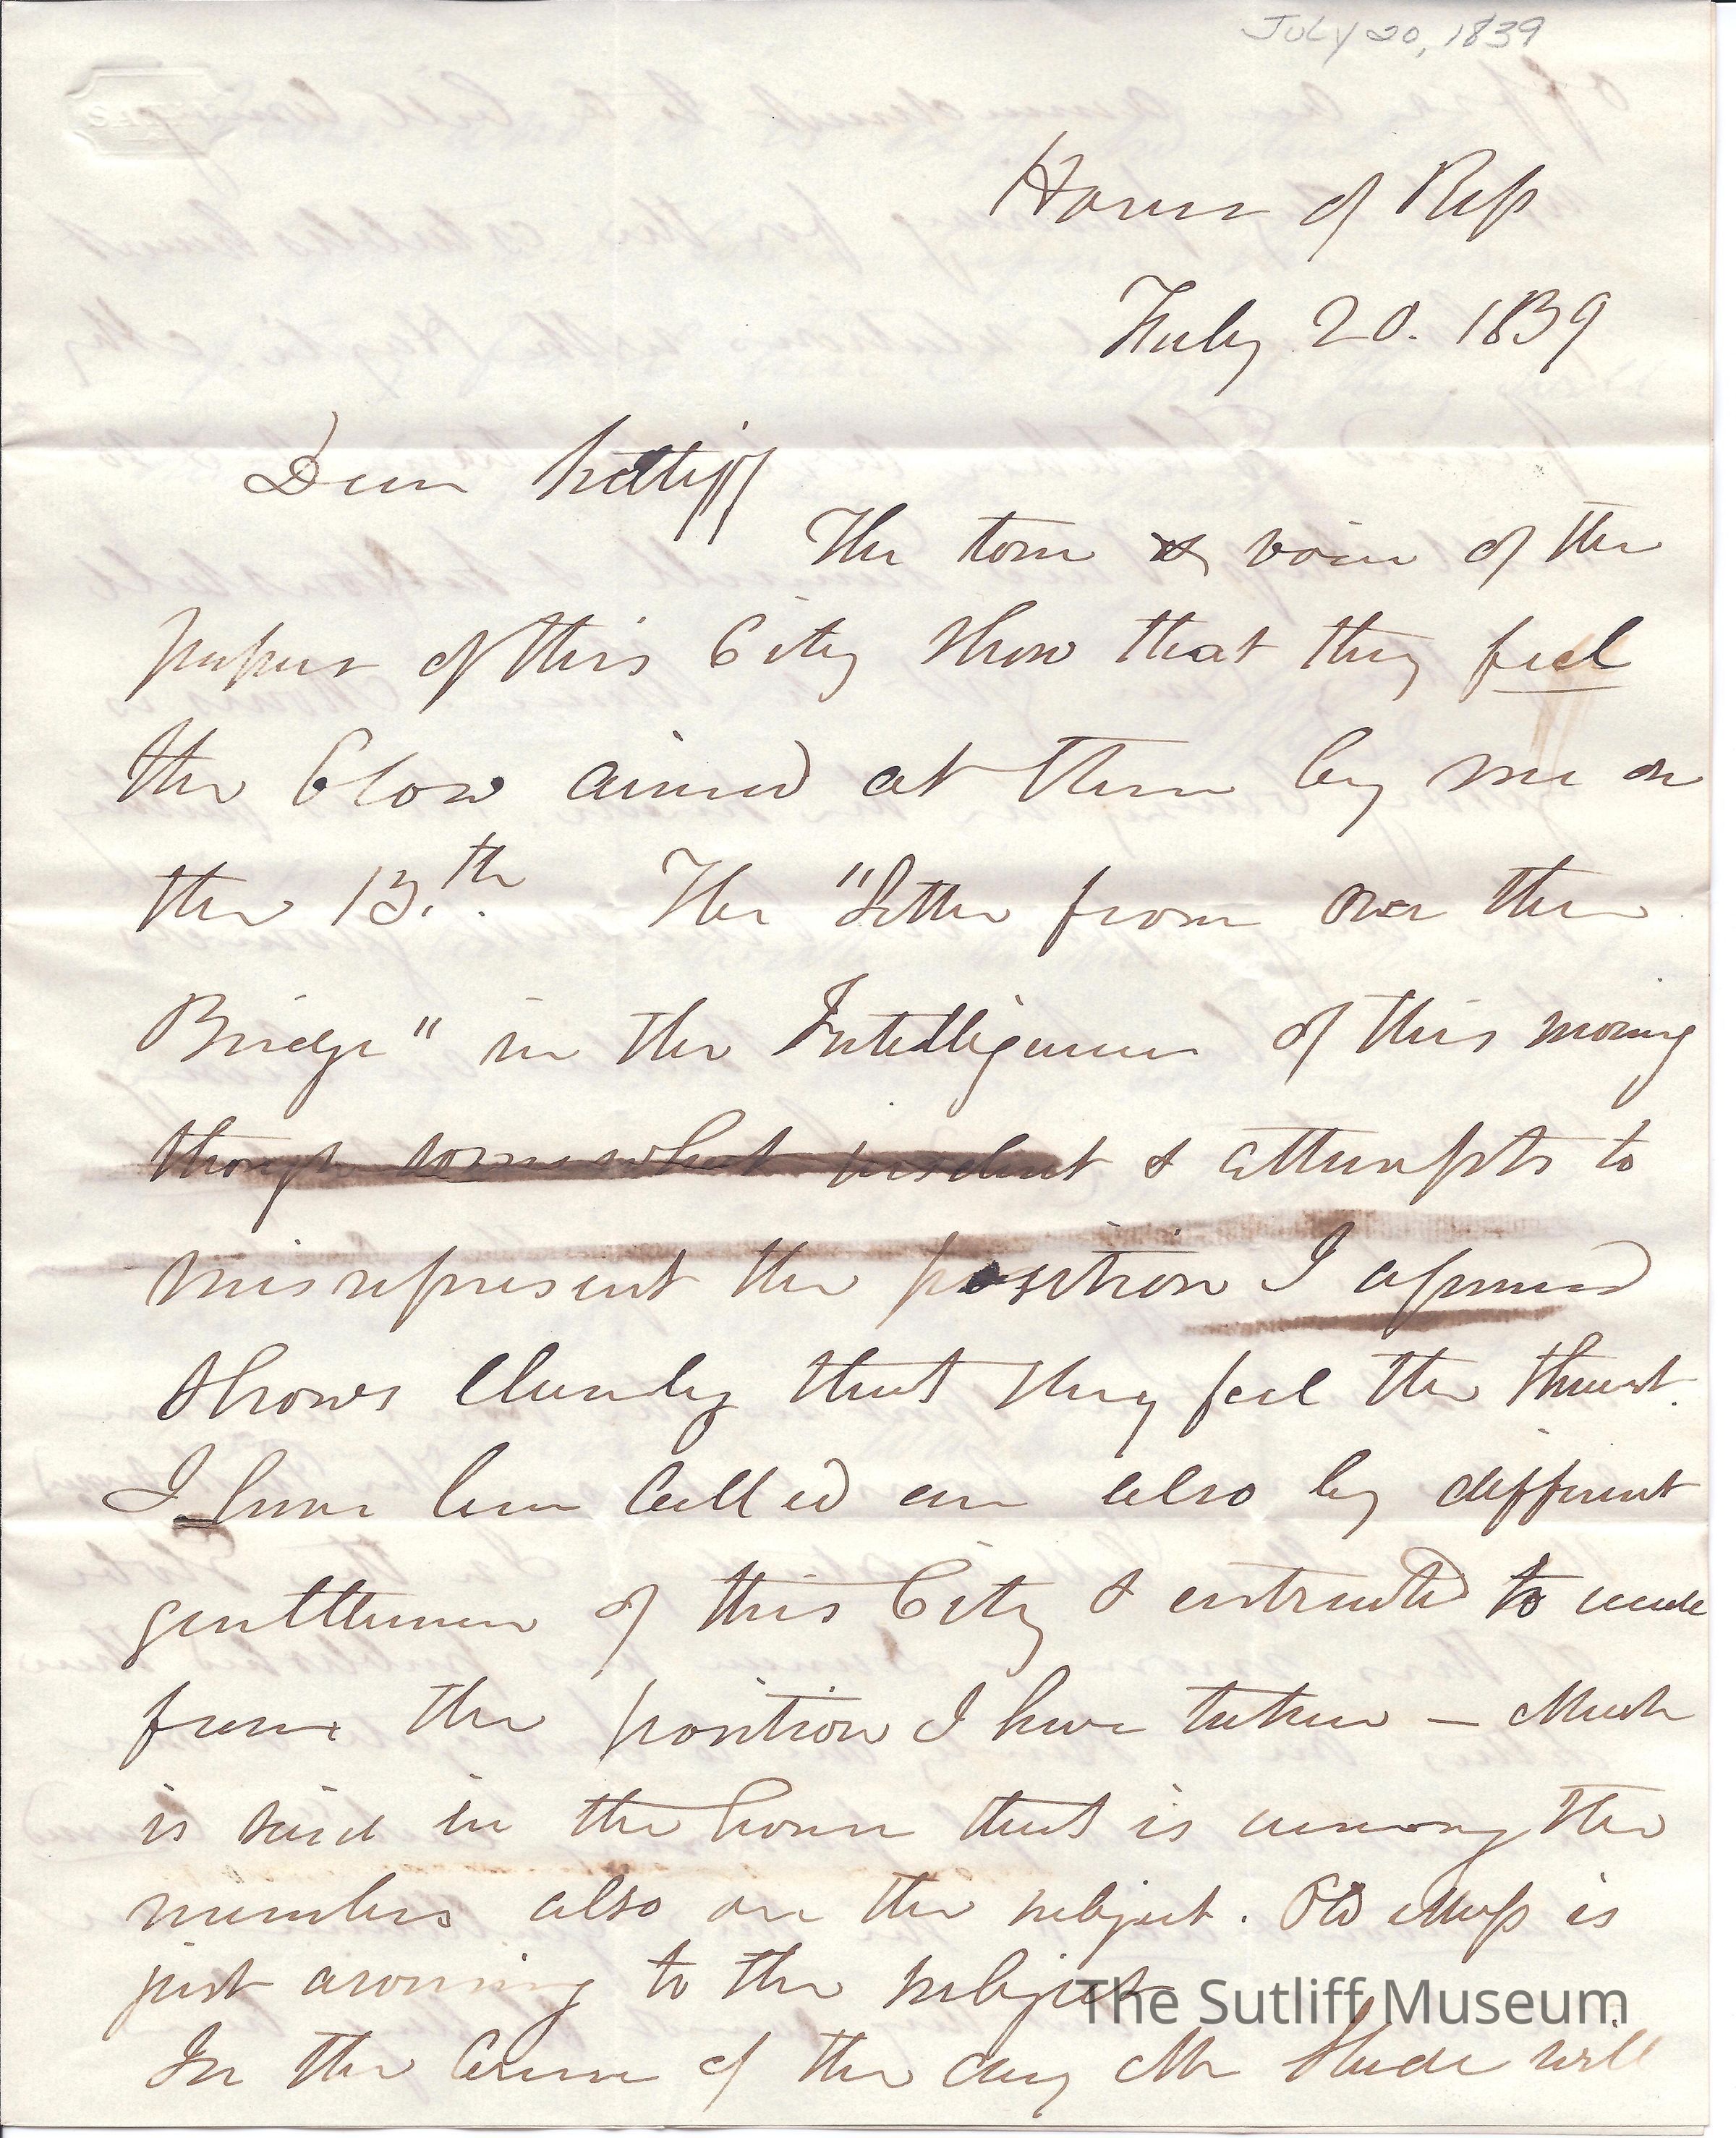 July 20, 1839
House of Reps
Feby 20. 1839
Dear Sutliff
The tone & voice of the
papers of this City show that they feel
the blow aimed at them by me on
the 13.th The "Letter from over the
Bridge" in the Intelligencer of this morning
though somewhat & attempts to
misrepresent the position I assumed
shows clearly that they feel the thrust.
I have been called on also by different
gentlemen of this City & entreated to recede
from the position I have taken — Much
is said in the house that is among the
members also on the subject. Old Mass is
just arousing to the subject
In the Course of the day Mr Slade will
The Sutliff Museum